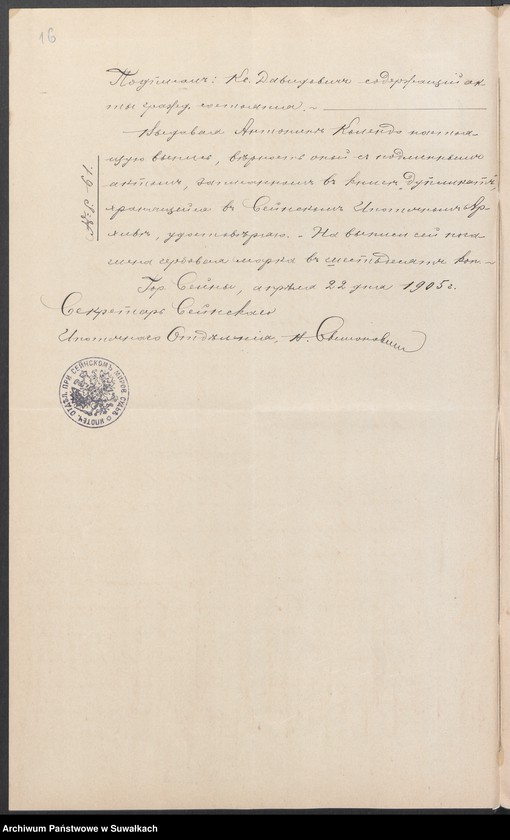 16
Подписалъ: Кс. Давидовичъ содержащій ак-
ты гражд. состоянія. ~
Выдавая Антонинѣ Колендо настоя-
щую выпись, вѣрность оной съ подлиннымъ
актомъ, записаннымъ въ книгѣ „Дупликатъ”,
хранящійся въ Сейнскомъ Ипотечномъ Ар-
хивѣ, удостовѣряю. - На выписи сей нак-
леена гербовая марка въ шестьдесятъ коп. ~
Гор. Сейны, апрѣля 22 дня 1905 г.
Секретарь Сейнскаго
Ипотечнаго Отдѣленія,
ИПОТЕЧ. ОТДѢЛ. ПРИ СЕЙНСКОМЪ МИРОВ. СУДЬѢ
Archiwum Państwowe w Suwałkach